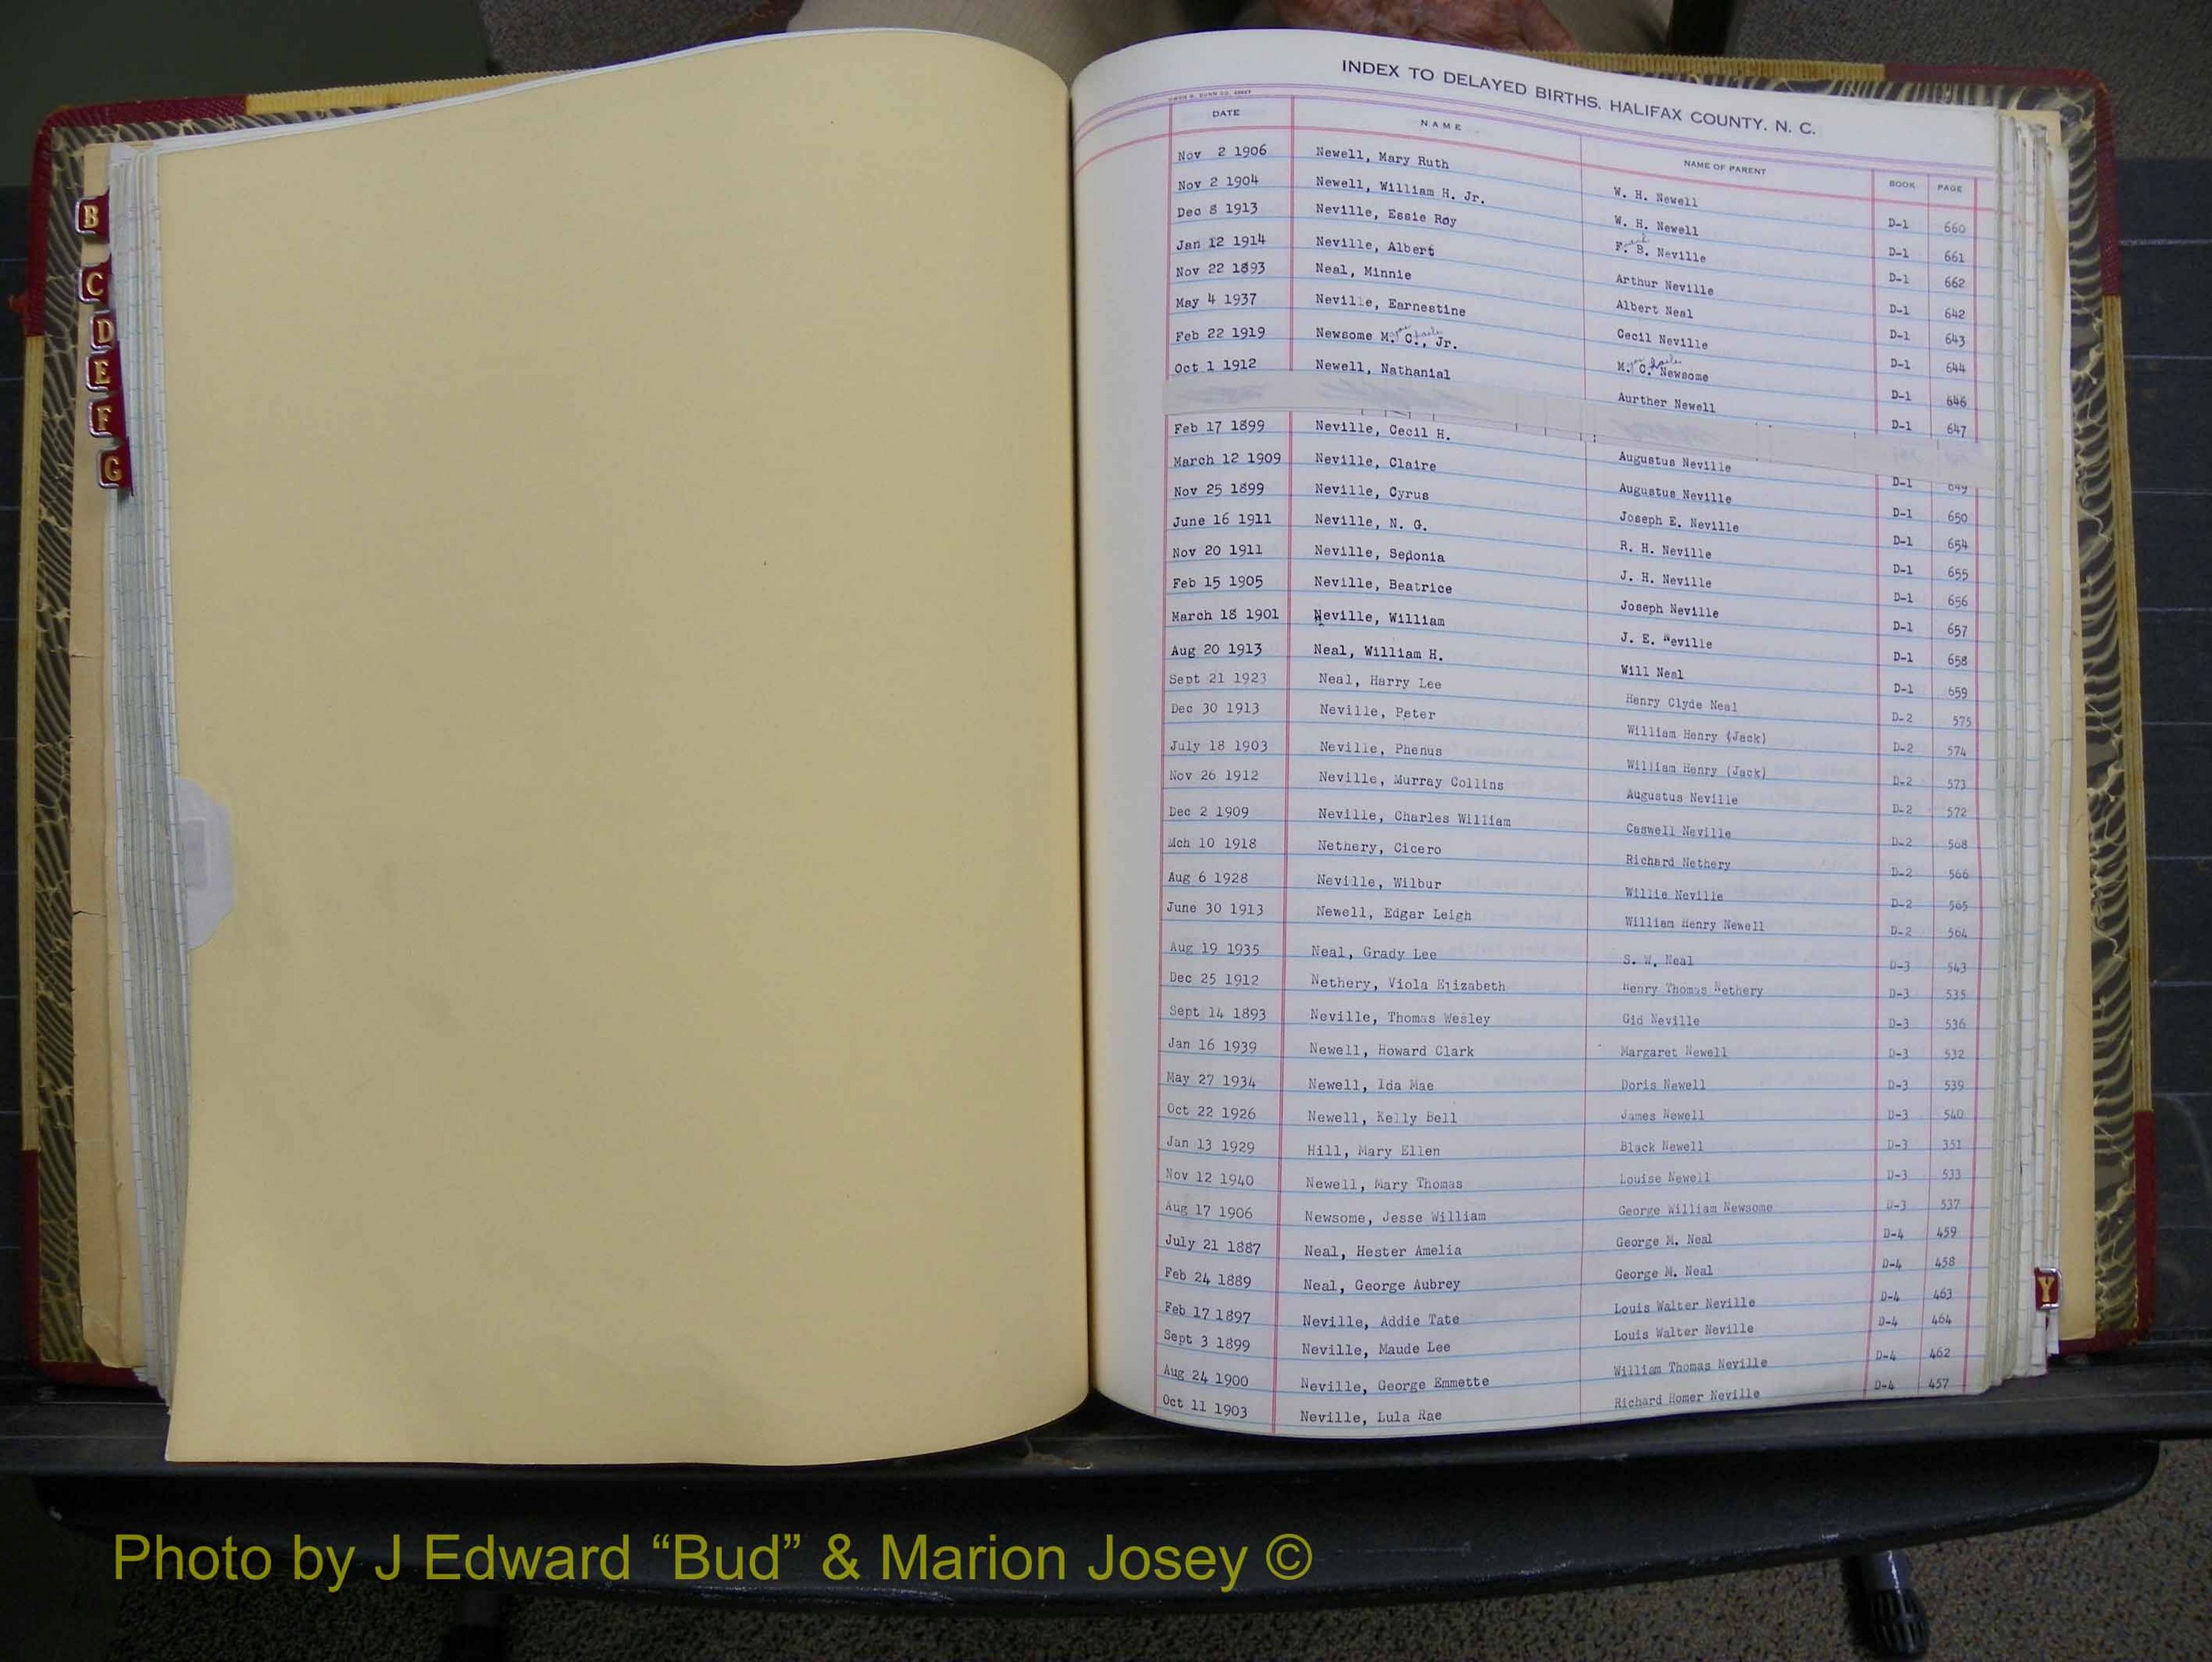 INDEX TO DELAYED BIRTHS, HALIFAX COUNTY, N. C.
DATE NAME NAME OF PARENT BOOK PAGE
Nov 2 1906 Newell, Mary Ruth W. H. Newell D-1 660
Nov 2 1904 Newell, William H. Jr. W. H. Newell D-1 661
Dec 8 1913 Neville, Essie Roy F. B. Neville D-1 662
Jan 12 1914 Neville, Albert Arthur Neville D-1 642
Nov 22 1893 Neal, Minnie Albert Neal D-1 643
May 4 1937 Neville, Earnestine Cecil Neville D-1 644
Feb 22 1919 Newsome M. C., Jr. M. C. Newsome D-1 646
Oct 1 1912 Newell, Nathanial Aurther Newell D-1 647
Feb 17 1899 Neville, Cecil H. Augustus Neville D-1 649
March 12 1909 Neville, Claire Augustus Neville D-1 650
Nov 25 1899 Neville, Cyrus Joseph E. Neville D-1 654
June 16 1911 Neville, N. G. R. H. Neville D-1 655
Nov 20 1911 Neville, Sedonia J. H. Neville D-1 656
Feb 15 1905 Neville, Beatrice Joseph Neville D-1 657
March 18 1901 Neville, William J. E. Neville D-1 658
Aug 20 1913 Neal, William H. Will Neal D-1 659
Sept 21 1923 Neal, Harry Lee Henry Clyde Neal D-2 575
Dec 30 1913 Neville, Peter William Henry (Jack) D-2 574
July 18 1903 Neville, Phenus William Henry (Jack) D-2 573
Nov 26 1912 Neville, Murray Collins Augustus Neville D-2 572
Dec 2 1909 Neville, Charles William Caswell Neville D-2 568
Mch 10 1918 Nethery, Cicero Richard Nethery D-2 566
Aug 6 1928 Neville, Wilbur Willie Neville D-2 565
June 30 1913 Newell, Edgar Leigh William Henry Newell D-2 564
Aug 19 1935 Neal, Grady Lee S. W. Neal D-3 543
Dec 25 1912 Nethery, Viola Elizabeth Henry Thomas Nethery D-3 535
Sept 14 1893 Neville, Thomas Wesley Gid Neville D-3 536
Jan 16 1939 Newell, Howard Clark Margaret Newell D-3 532
May 27 1934 Newell, Ida Mae Doris Newell D-3 539
Oct 22 1926 Newell, Kelly Bell James Newell D-3 540
Jan 13 1929 Hill, Mary Ellen Black Newell D-3 351
Nov 12 1940 Newell, Mary Thomas Louise Newell D-3 533
Aug 17 1906 Newsome, Jesse William George William Newsome D-3 537
July 21 1887 Neal, Hester Amelia George M. Neal D-4 459
Feb 24 1889 Neal, George Aubrey George M. Neal D-4 458
Feb 17 1897 Neville, Addie Tate Louis Walter Neville D-4 463
Sept 3 1899 Neville, Maude Lee Louis Walter Neville D-4 464
Aug 24 1900 Neville, George Emmette William Thomas Neville D-4 462
Oct 11 1903 Neville, Lula Rae Richard Homer Neville D-4 457
B
C
D
E
F
G
Y
Photo by J Edward “Bud” & Marion Josey ©